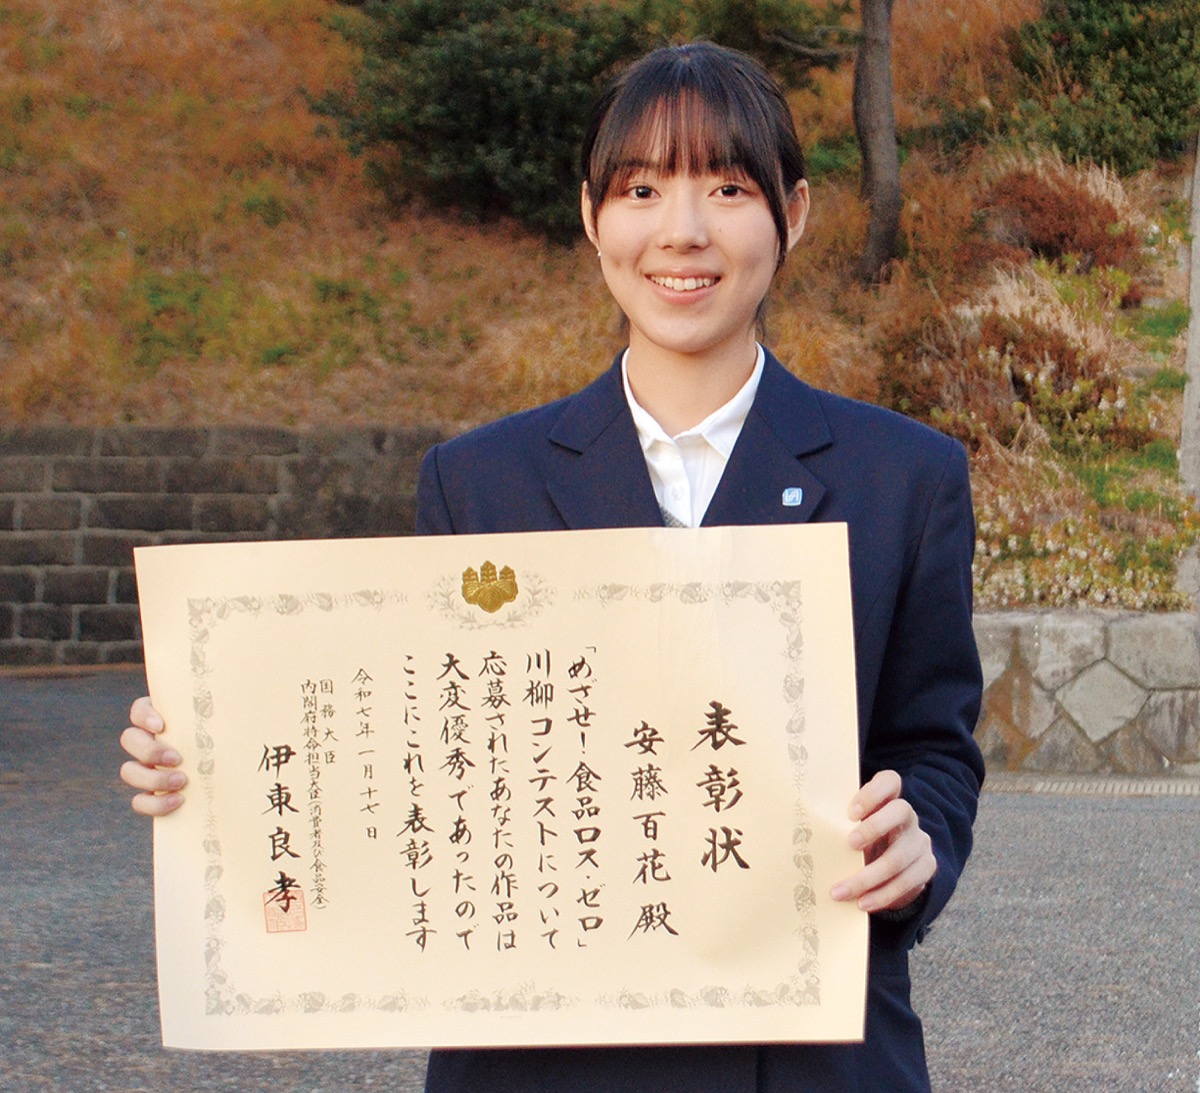 表彰状
安藤百花殿
「めざせ!食品ロス・ゼロ」
川柳コンテストについて
応募されたあなたの作品は
大変優秀であったので
ここにこれを表彰します
令和七年一月十七日
国務大臣
内閣府特命担当大臣(消費者及び食品安全)
伊東良孝